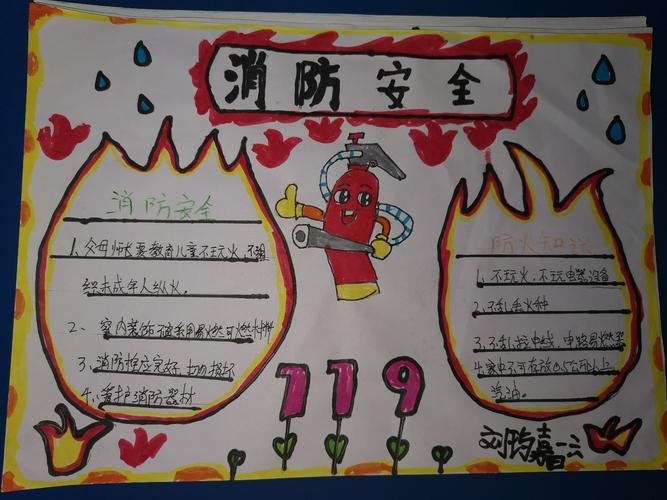 消防安全
消防安全
1、父母师长要教育儿童不玩火，不组
织未成年人纵火。
2、室内装饰不宜采用易燃可燃材料
3、消防栓应完好，切勿损坏
4、爱护消防器材
119
防火知识
1、不玩火、不玩电器设备
2、不乱丢火种
3、不乱接电线，电路易燃
4、家中不可存放0.5公斤以上
汽油。